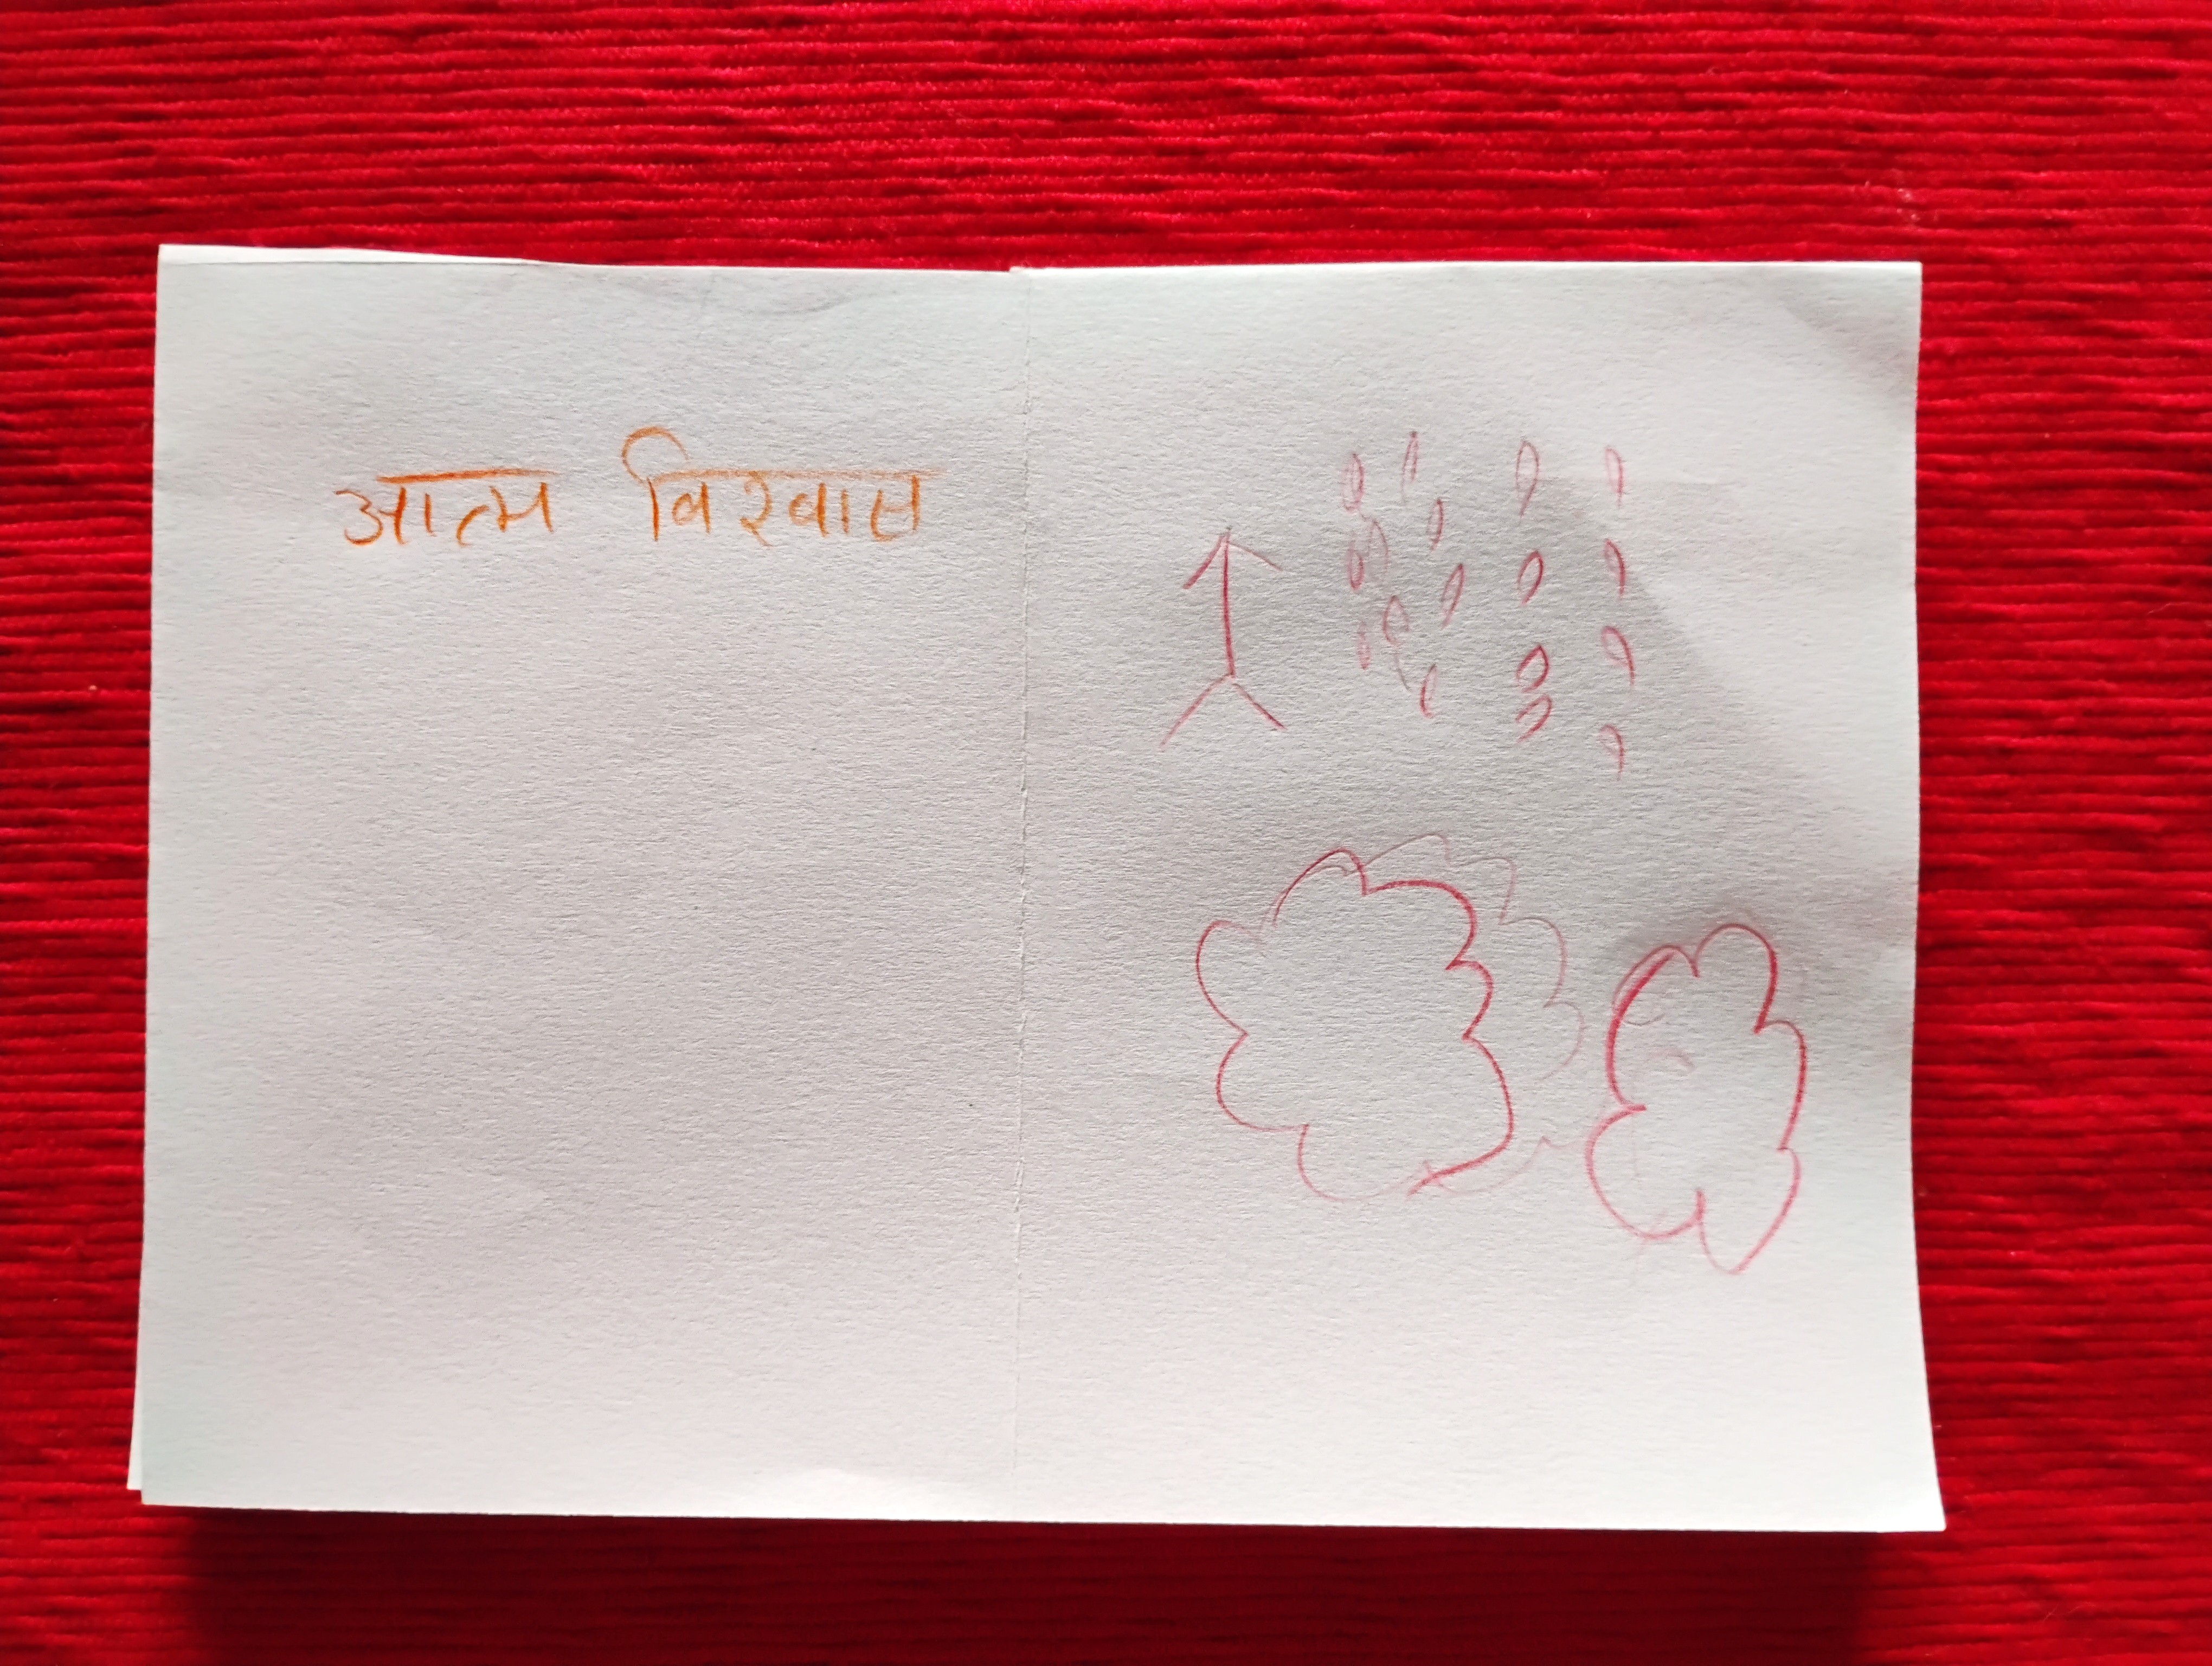 आत्म विश्वास